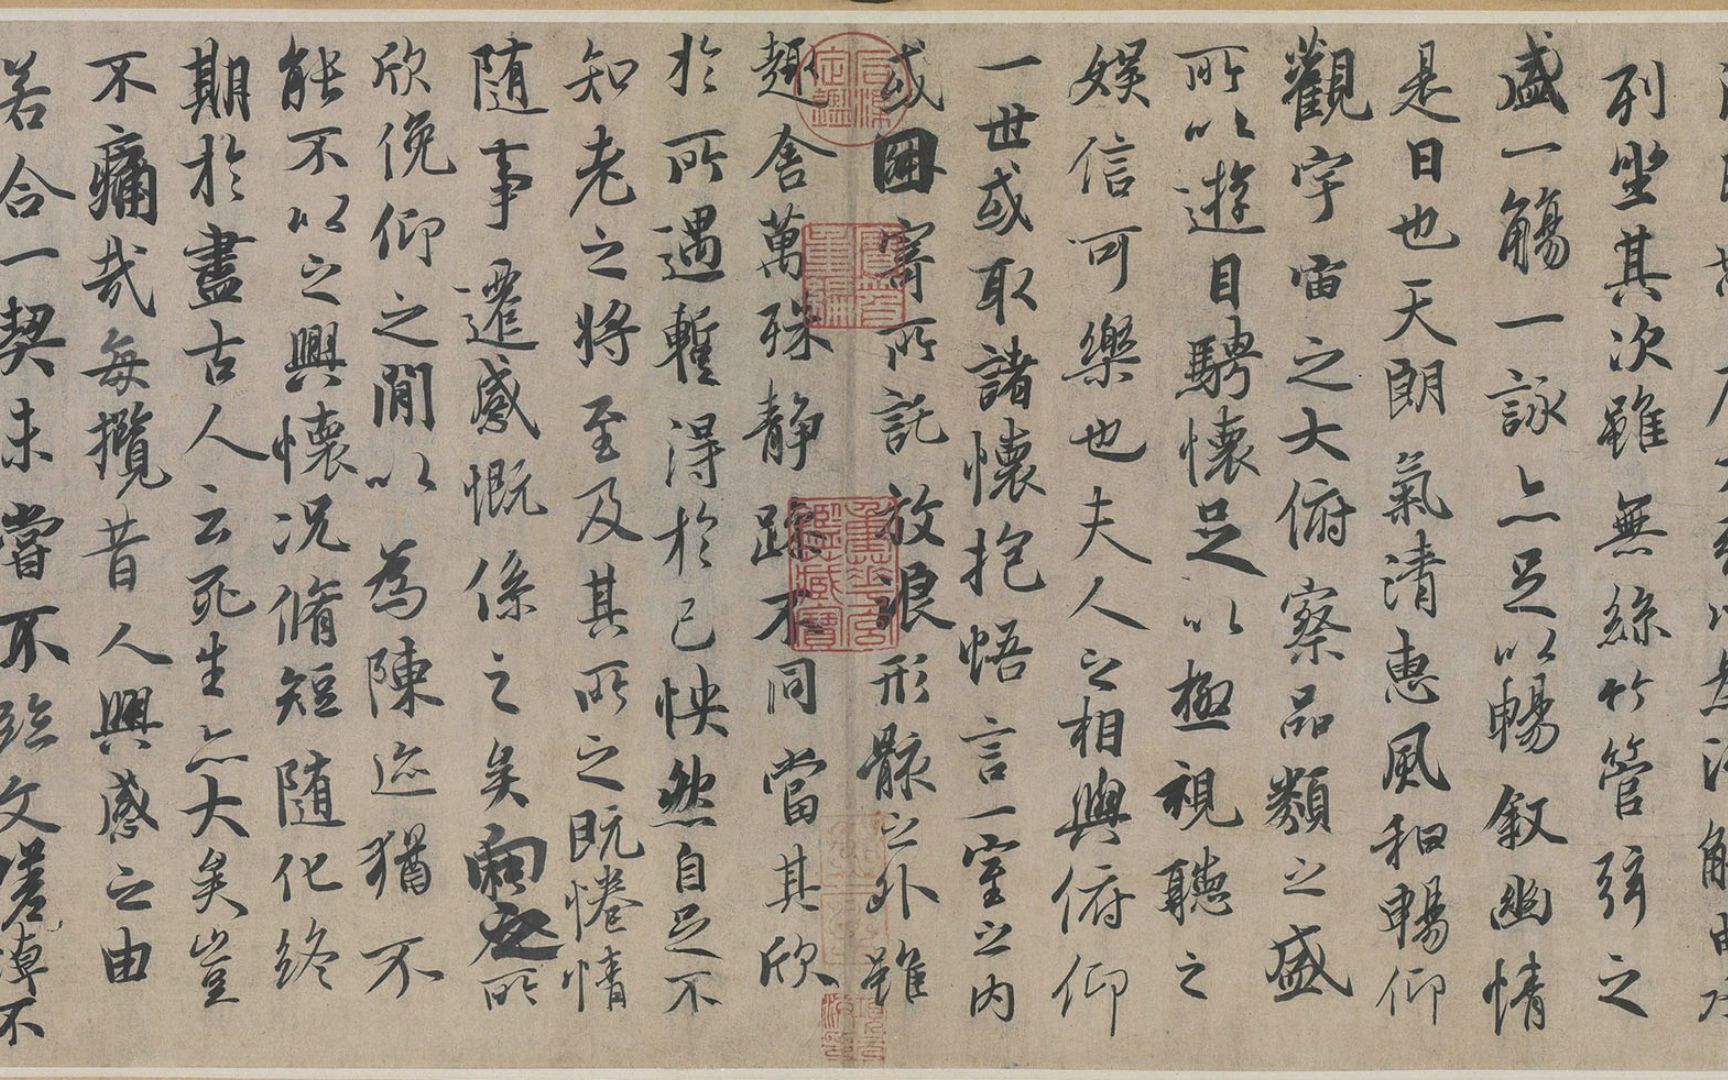 列坐其次雖無絲竹管弦之
盛一觴一詠亦足以暢敘幽情
是日也天朗氣清惠風和暢仰
觀宇宙之大俯察品類之盛
所以遊目騁懷足以極視聽之
娛信可樂也夫人之相與俯仰
一世或取諸懷抱悟言一室之內
或因寄所託放浪形骸之外雖
趣舍萬殊静躁不同當其欣
於所遇暫得於己怏然自足不
知老之將至及其所之既惓情
随事遷感慨係之矣向之所
欣俛仰之間以為陳迹猶不
能不以之興懷況脩短随化終
期於盡古人云死生亦大矣豈
不痛哉每攬昔人興感之由
若合一契未嘗不臨文嗟悼不